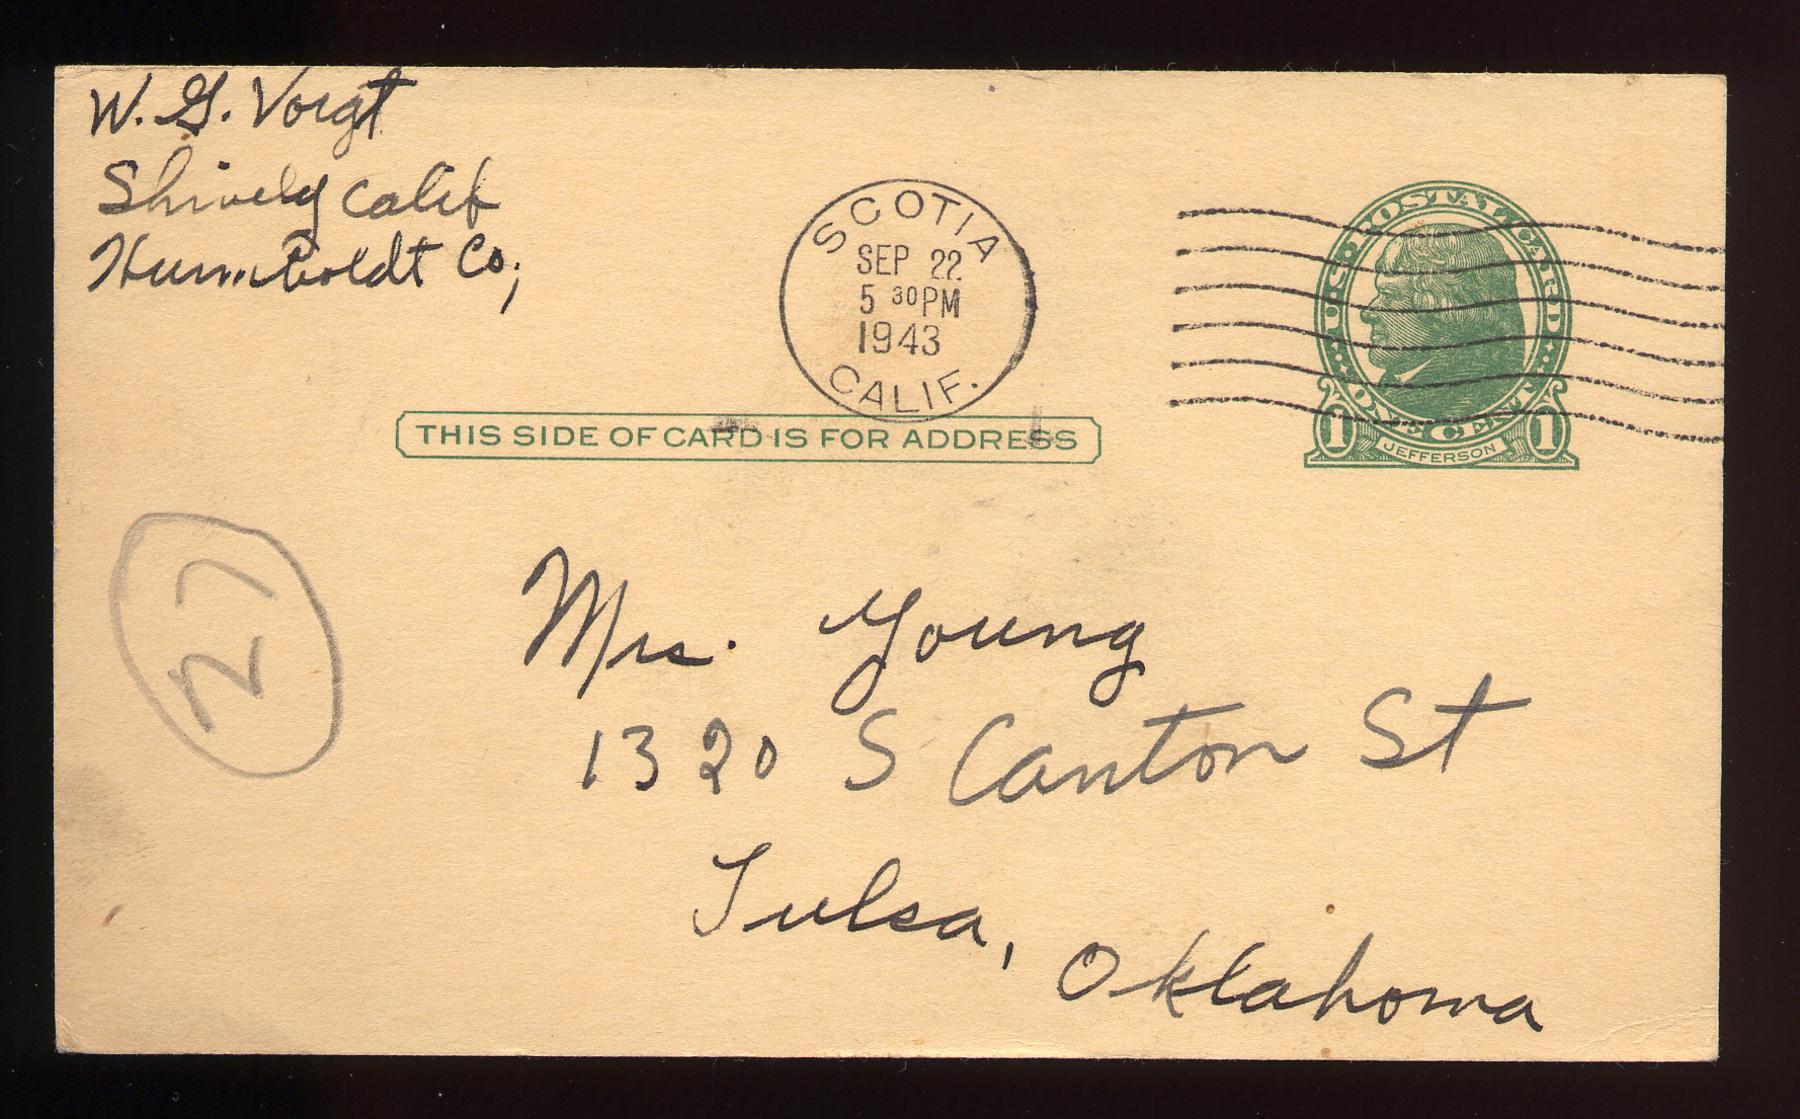 W. G. Voigt
Shively Calif
Humboldt Co;
SCOTIA
SEP 22
5 30 PM
1943
CALIF.
U.S. POSTAL CARD
ONE CENT
1 JEFFERSON 1
THIS SIDE OF CARD IS FOR ADDRESS
27
Mrs. Young
1320 S Canton St
Tulsa, Oklahoma